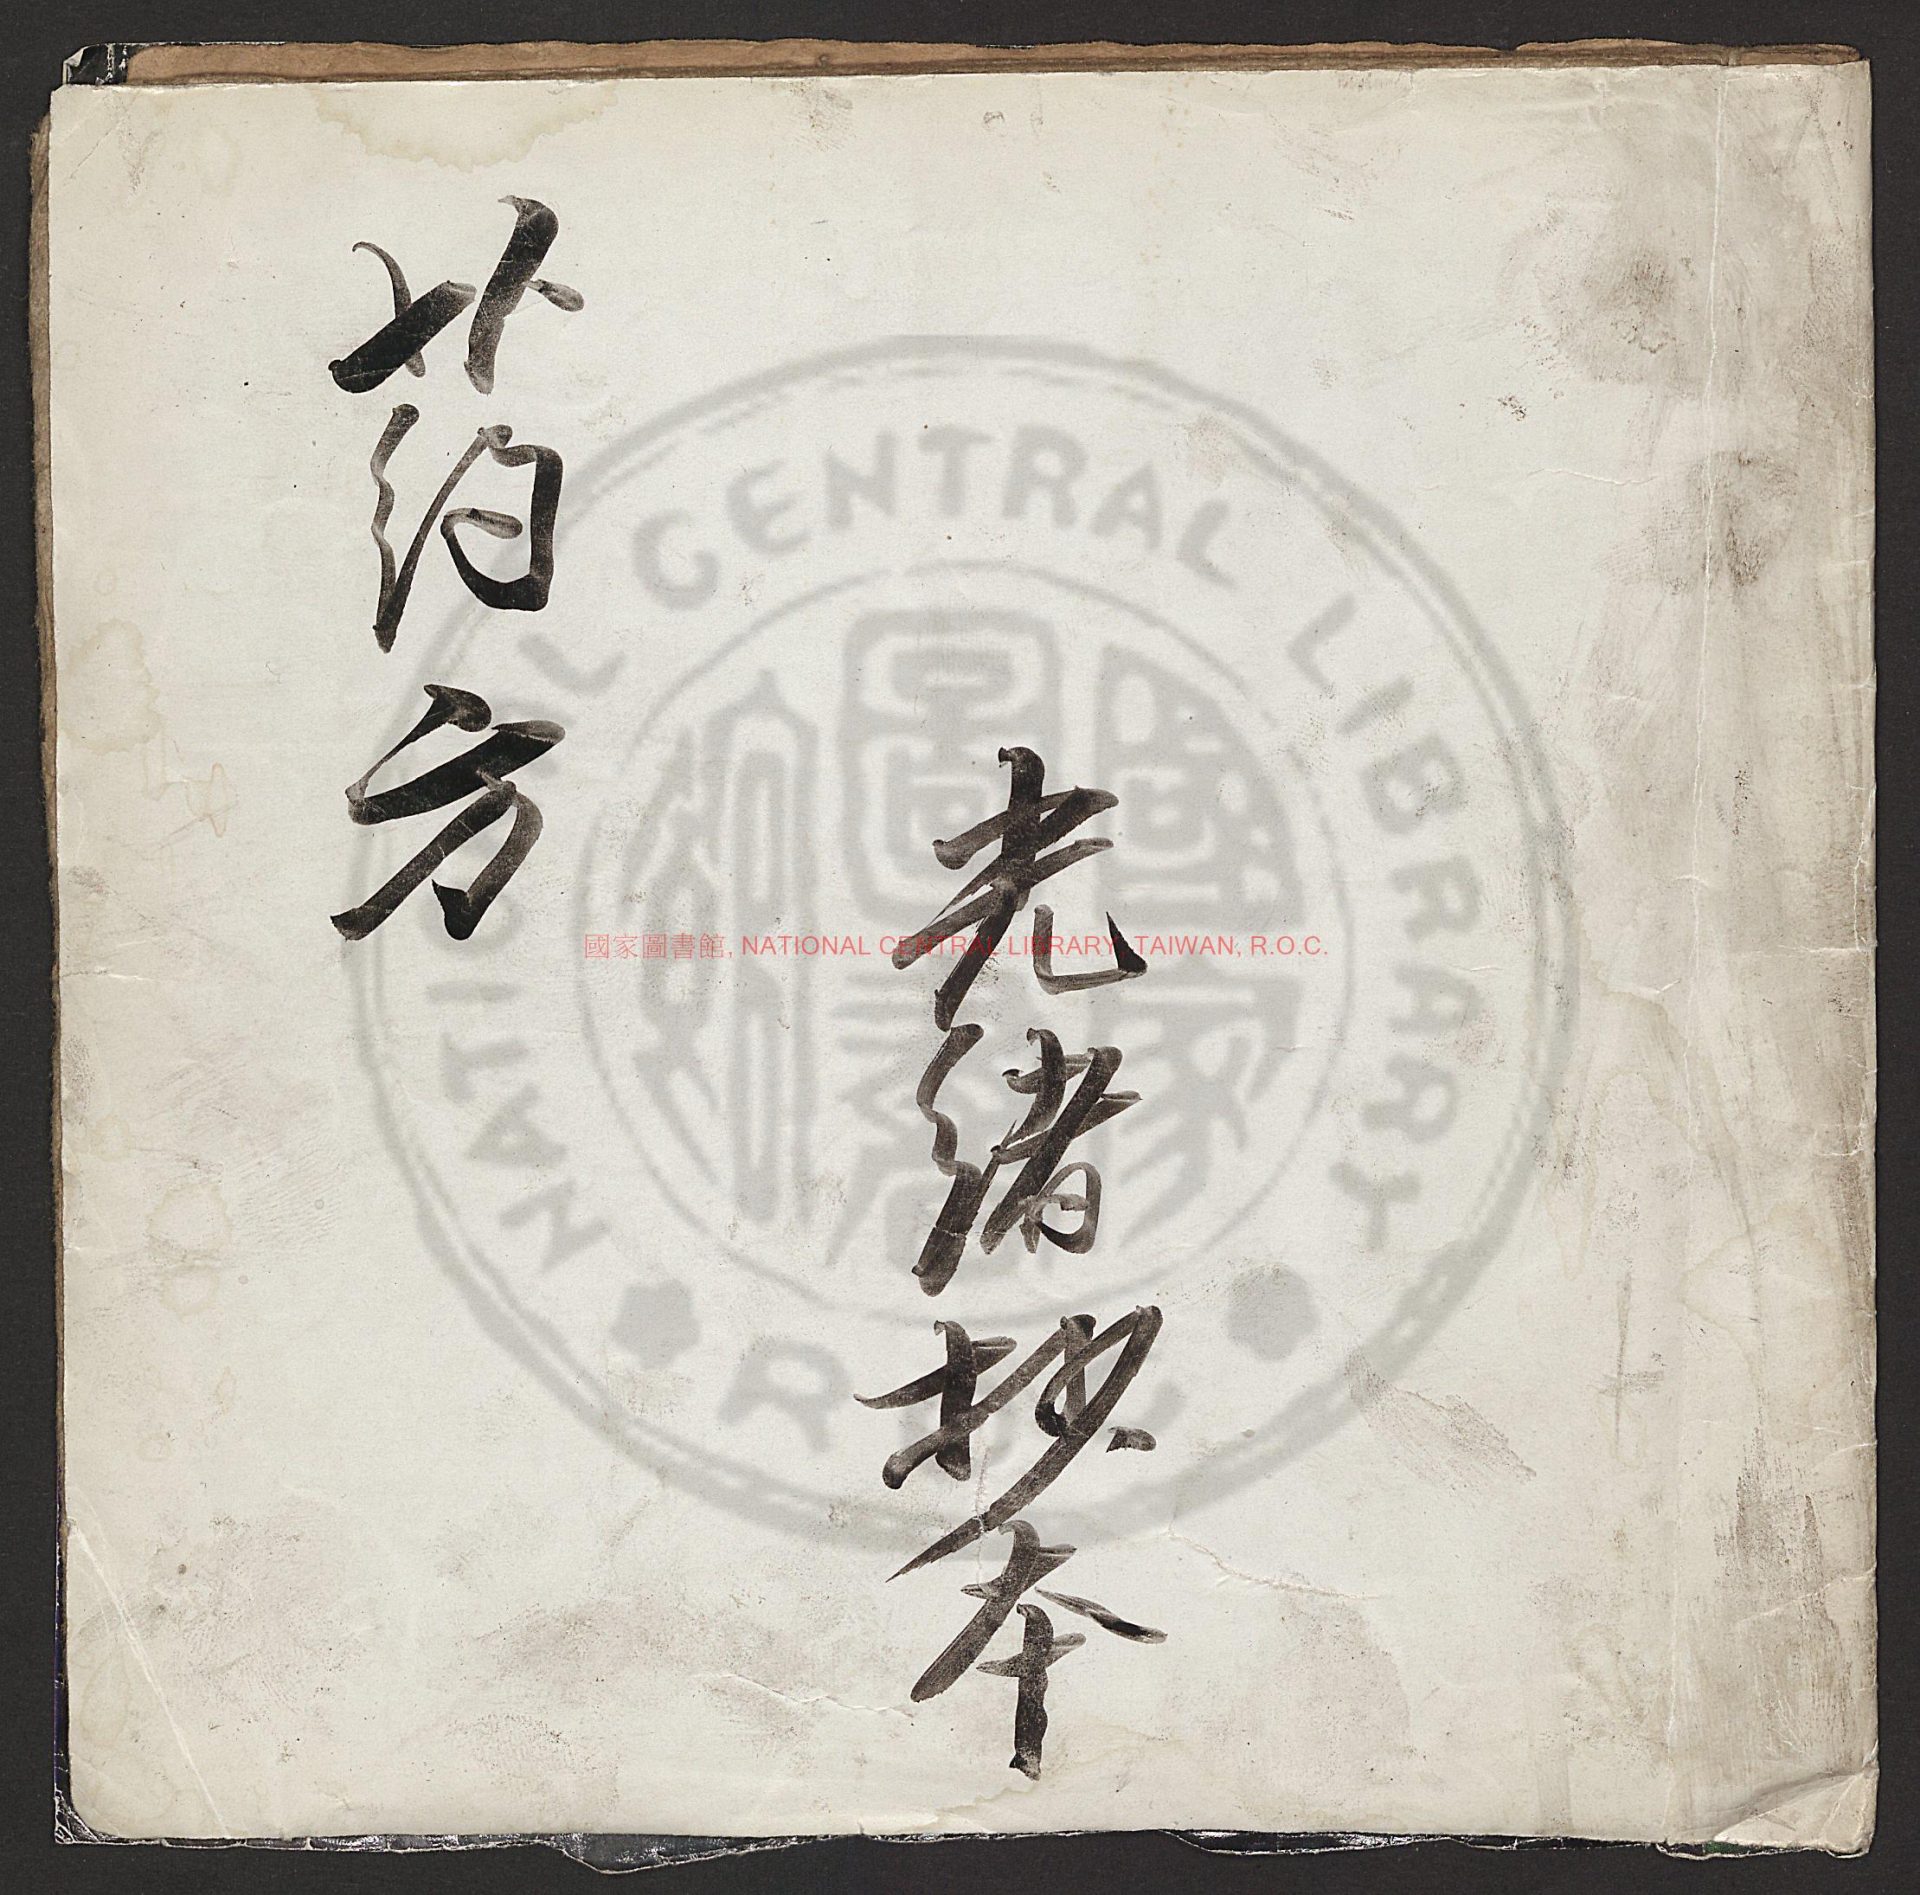 光緒抄本
药方
國家圖書館, NATIONAL CENTRAL LIBRARY, TAIWAN, R.O.C.
NATIONAL CENTRAL LIBRARY
國家圖書館